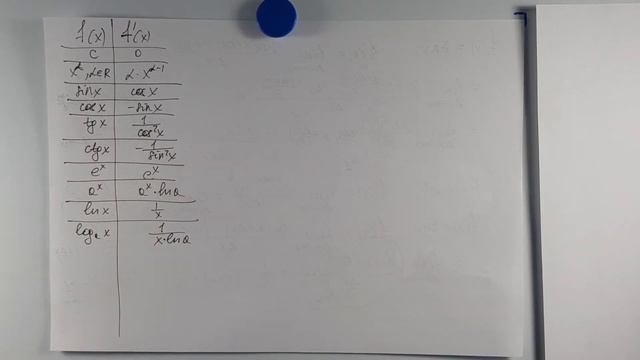 f(x) f'(x)
C 0
x^α, α∈R α·x^(α-1)
sin x cos x
cos x -sin x
tg x 1/cos²x
ctg x -1/sin²x
e^x e^x
a^x a^x·ln a
ln x 1/x
log_a x 1/(x·ln a)